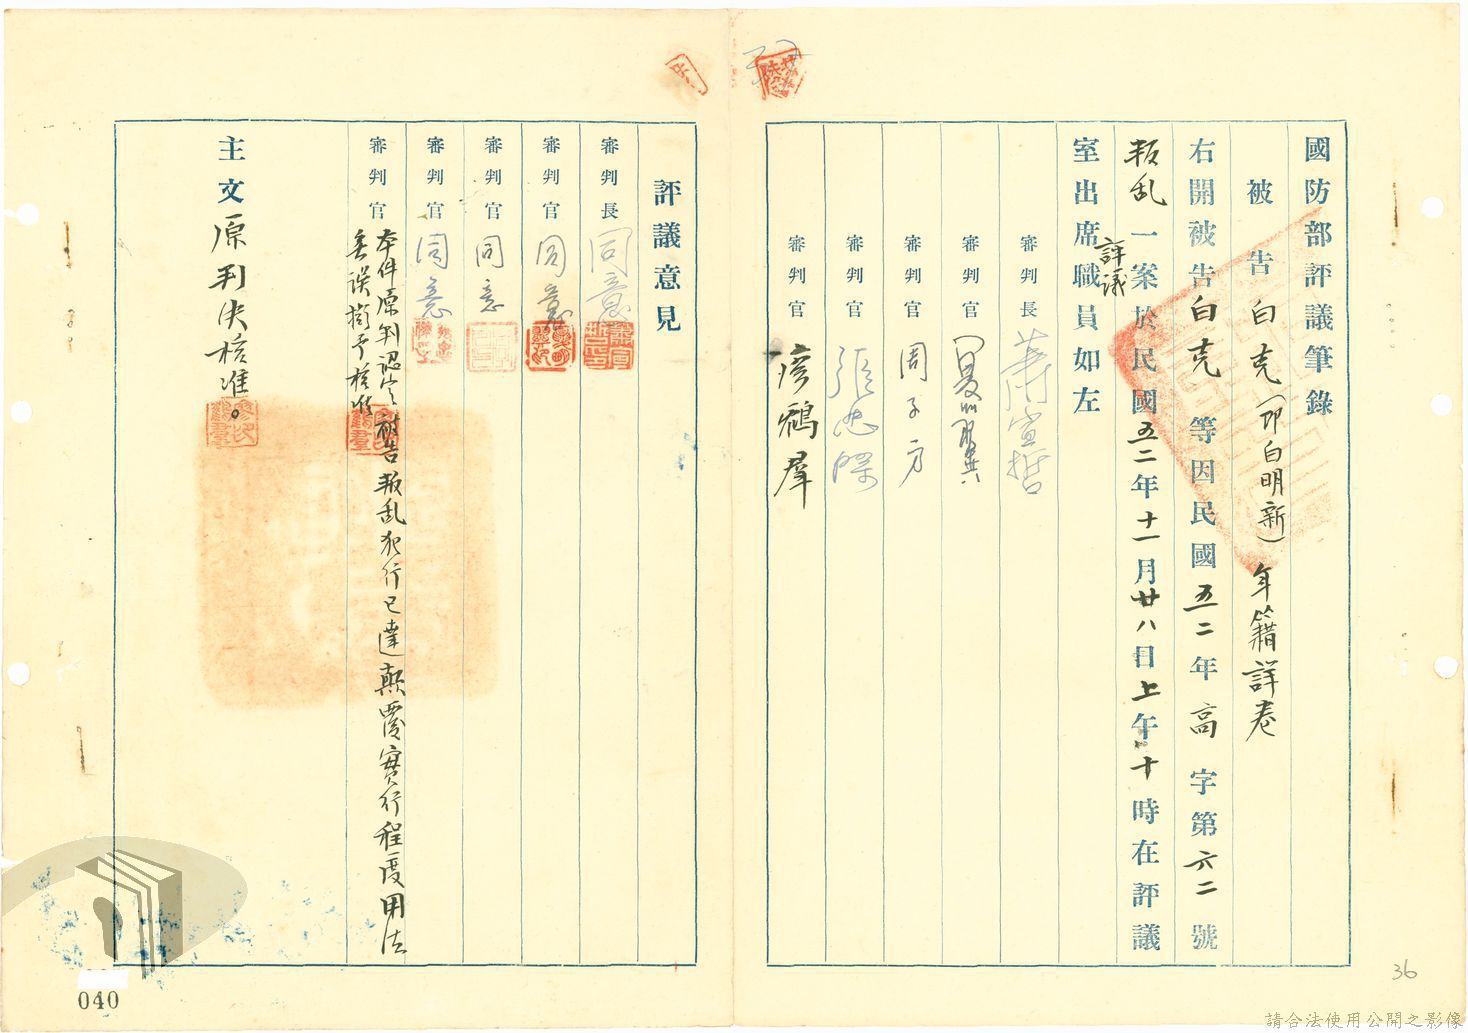 國防部評議筆錄
被告白克（即白明新）年籍詳卷
右開被告白克 等因民國五二年高字第六二號
叛乱一案於民國五二年十一月廿八日上午十時在評議
評議
室出席職員如左
審判長 蕭宣哲
審判官 夏翼
審判官 周子方
審判官 張忠
審判官 鶴羣
評議意見
審判長 同意
審判官 同意
審判官 同意
審判官 同意
審判官 本件原判認定被告叛乱犯行已達顛覆實行程度用法
無誤擬予核准
主文 原判決核准。
36
040
請合法使用公開之影像